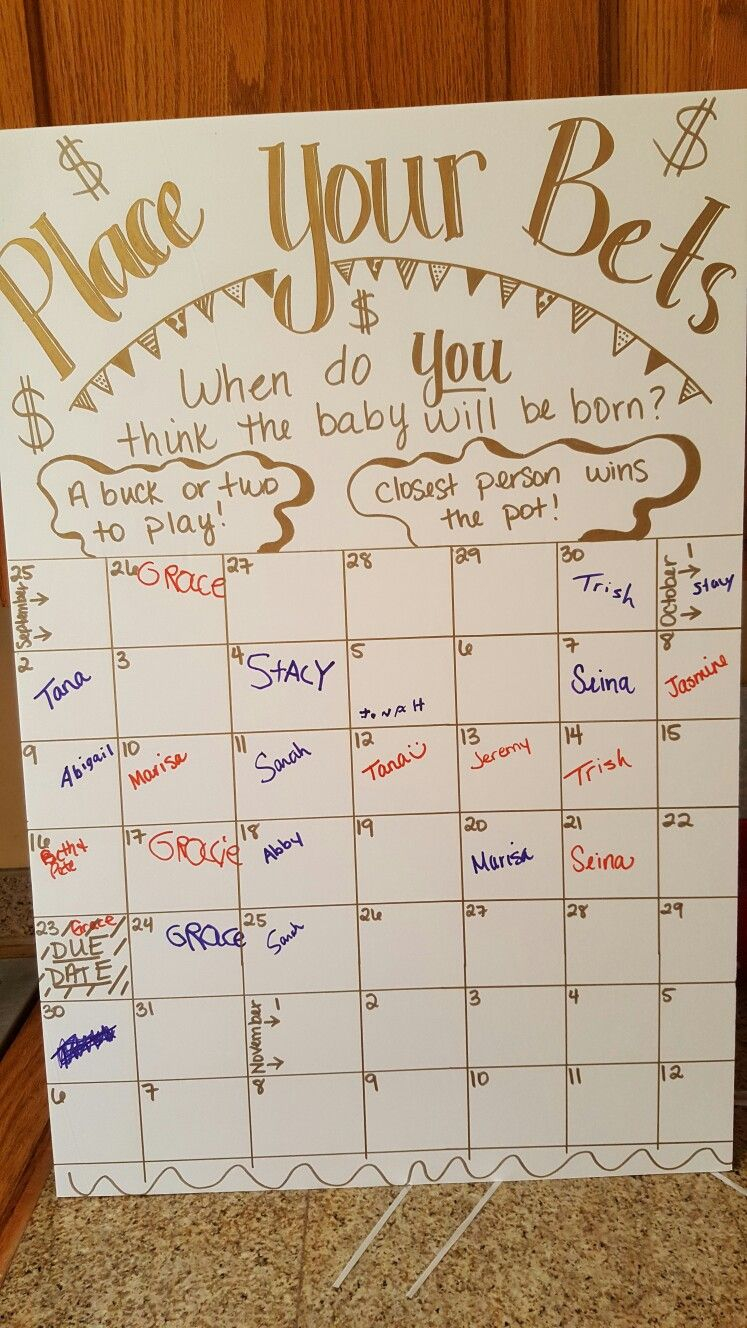 $
$
Place Your Bets
$
$
When do you
think the baby will be born?
A buck or two
to play!
closest person wins
the pot!
25 26 GRACE 27 28 29 30 Trish 1 Stacy
September
October
2 Tana 3 4 STACY 5 6 7 Seina 8 Jasmine
9 Abigail 10 Marisa 11 Sarah 12 Tana 13 Jeremy 14 Trish 15
16 17 GRACIE 18 Abby 19 20 Marisa 21 Seina 22
23 Grace 24 GRACE 25 Sarah 26 27 28 29
DUE
DATE
30 31 1 2 3 4 5
November
6 7 8 9 10 11 12